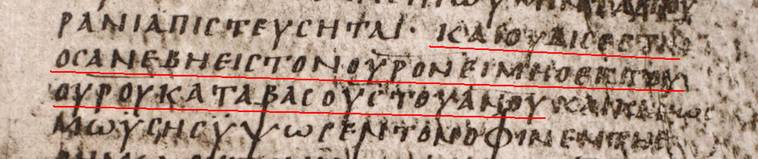 ΡΑΝΙΑΠΙCΤΕΥCΗΤΑΙ· ΚΑΙΟΥΔΙCΕCΤΙΝ
ΟCΑΝΕΒΗΕΙCΤΟΝΟΥΡΟΝΕΙΜΗΟΕΚΤΟΥ
ΟΥΡΟΥΚΑΤΑΒΑCΟΥCΤΟΥΑΝΟΥ ΚΑΙΚΑΘΩC
ΜΩΥCΗCΥΨΩCΕΝΤΟΝΟΦΙΝΕΝΤΗΕ